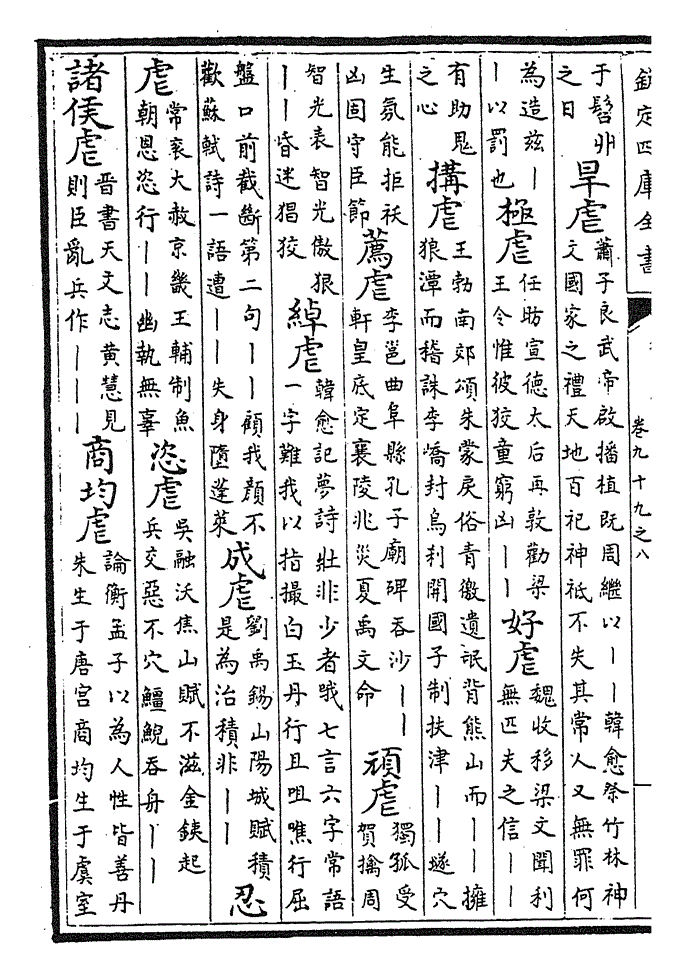 欽定四庫全書 卷九十九之八
于髫丱之日 旱虐 蕭子良武帝啟播植既周繼以｜｜韓愈祭竹林神文國家之禮天地百祀神祇不失其常人又無罪何
為造兹｜｜以罰也 極虐 任昉宣德太后再敦勸梁王令惟彼狡童窮凶｜｜ 好虐 魏收移梁文聞利無匹夫之信｜｜
有助鬼之心 搆虐 王勃南郊頌朱蒙戾俗青徼遺氓背熊山而｜｜擁狼潭而稽誅李嶠封烏利開國子制扶津｜｜邃穴
生氛能拒祅凶固守臣節 薦虐 李邕曲阜縣孔子廟碑吞沙｜｜軒皇底定襄陵兆災夏禹文命 頑虐 獨孤受賀擒周
智光表智光傲狠｜｜昏迷猖狡 綽虐 韓愈記夢詩壯非少者哦七言六字常語一字難我以指撮白玉丹行且咀噍行屈
盤口前截斷第二句｜｜顧我顔不歡蘇軾詩一語遭｜｜失身墮蓬萊 成虐 劉禹錫山陽城賦積是為治積非｜｜ 忍
虐 常衮大赦京畿王輔制魚朝恩恣行｜｜幽執無辜 恣虐 吳融沃焦山賦不滋金鋏起兵交惡不穴鱷鯢吞舟｜｜
諸侯虐 晋書天文志黄慧見則臣亂兵作｜｜｜ 商均虐 論衡孟子以為人性皆善丹朱生于唐宫商均生于虞室